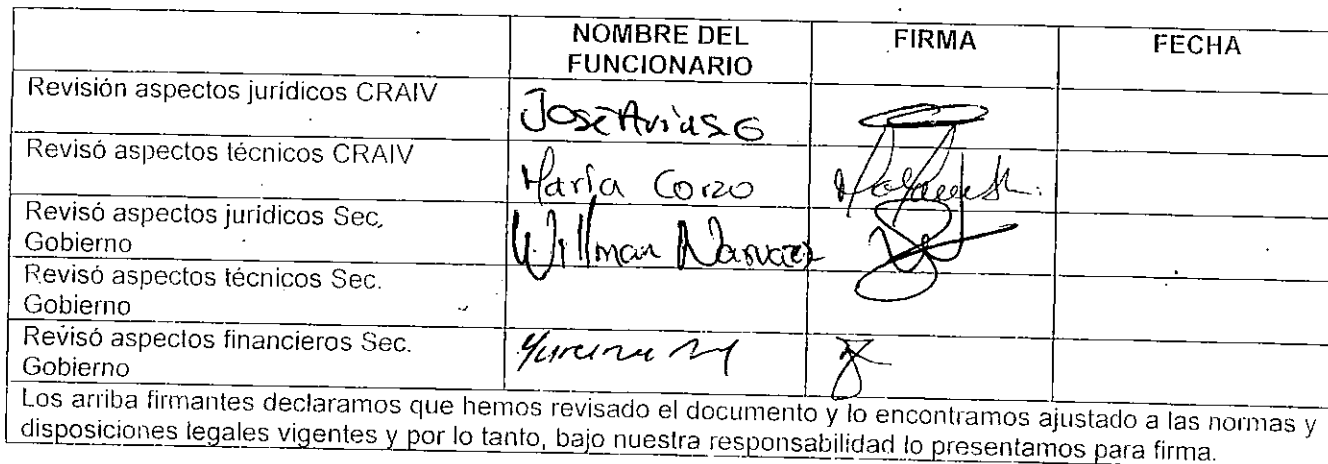 NOMBRE DEL FUNCIONARIO FIRMA FECHA
Revisión aspectos jurídicos CRAIV José Arias G
Revisó aspectos técnicos CRAIV María Corzo
Revisó aspectos jurídicos Sec. Gobierno Willman Narvaez
Revisó aspectos técnicos Sec. Gobierno
Revisó aspectos financieros Sec. Gobierno
Los arriba firmantes declaramos que hemos revisado el documento y lo encontramos ajustado a las normas y
disposiciones legales vigentes y por lo tanto, bajo nuestra responsabilidad lo presentamos para firma.